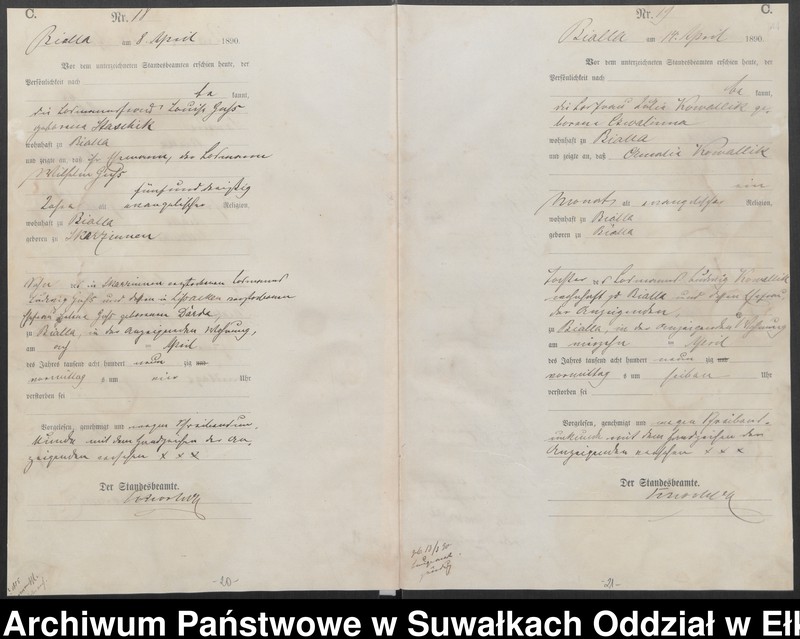 C.
Nr. 18
Bialla am 8 April 1890.
Vor dem unterzeichneten Standesbeamten erschien heute, der
Persönlichkeit nach
be kannt,
die Losmannsfrau Louise
geborene Staschik
wohnhaft zu Bialla
und zeigte an, daß ihr Ehemann, der Losmann
Wilhelm
fünf und dreißig
Jahre alt evangelischer Religion,
wohnhaft zu Bialla
geboren zu Skarzinnen
Sohn des in Skarzinnen verstorbenen Losmanns
Ludwig und dessen in verstorbenen
Ehefrau geborenen
zu Bialla, in der Anzeigenden Wohnung,
am April
des Jahres tausend acht hundert neun zig
vormittags um vier Uhr
verstorben sei
Vorgelesen, genehmigt und wegen Schreibensun-
kunde mit dem Handzeichen der An-
zeigenden versehen x x x
Der Standesbeamte.
-20-
Nr. 19
C.
Bialla am April 1890.
Vor dem unterzeichneten Standesbeamten erschien heute, der
Persönlichkeit nach
be kannt,
die Losfrau Kowallik ge-
borene
wohnhaft zu Bialla
und zeigte an, daß Amalie Kowallik
ein
Monat alt evangelischer Religion,
wohnhaft zu Bialla
geboren zu Bialla
Tochter des Losmanns Ludwig Kowallik
wohnhaft zu Bialla und dessen Ehefrau
der Anzeigenden,
zu Bialla, in der Anzeigenden Wohnung
am April
des Jahres tausend acht hundert neun zig
vormittags um sieben Uhr
verstorben sei
Vorgelesen, genehmigt und wegen Schreibens-
unkunde mit dem Handzeichen der
Anzeigenden versehen x x x
Der Standesbeamte.
-21-
Archiwum Państwowe w Suwałkach Oddział w Eł